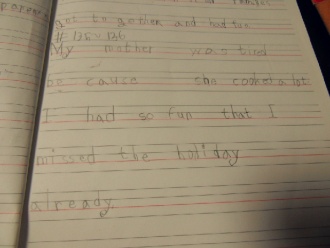 got to gather and had fun
# 135~136
My mother was tired
be cause she cooked a lot
I had so fun that I
missed the holiday
already.